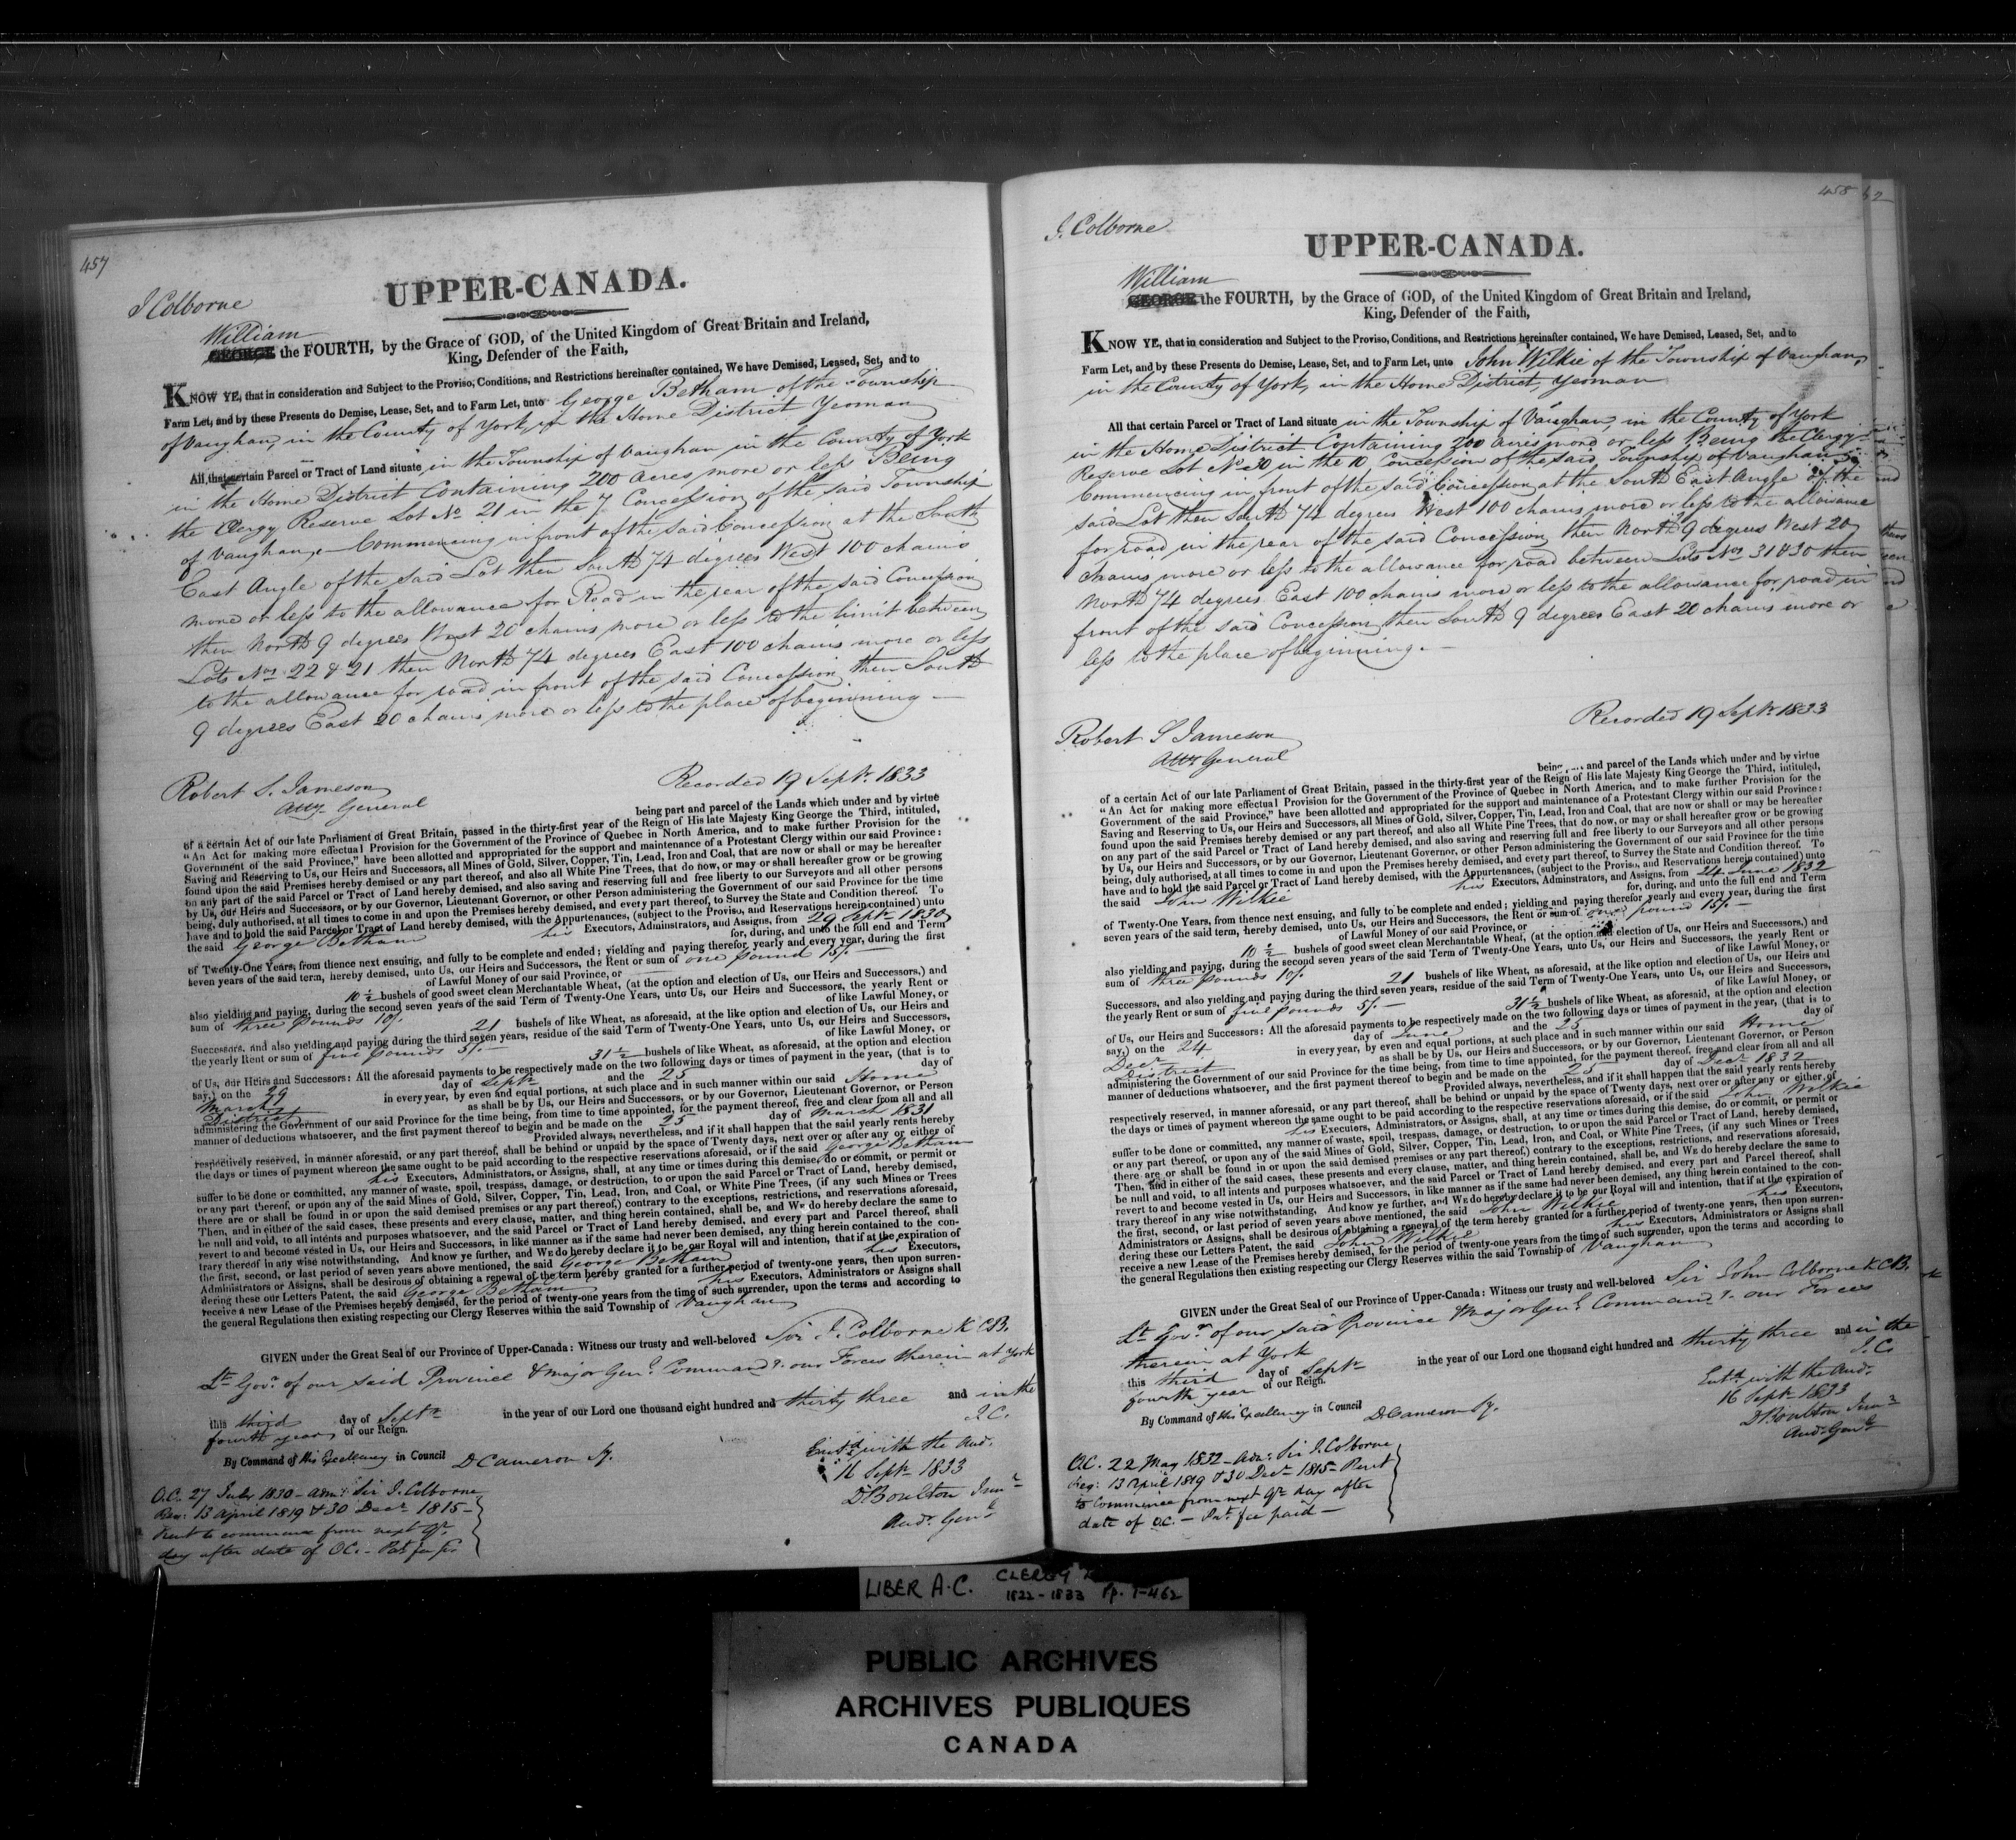 457
J Colborne
UPPER-CANADA.
William
GEORGE the FOURTH, by the Grace of GOD, of the United Kingdom of Great Britain and Ireland,
King, Defender of the Faith,
KNOW YE, that in consideration and Subject to the Proviso, Conditions, and Restrictions hereinafter contained, We have Demised, Leased, Set, and to
Farm Let, and by these Presents do Demise, Lease, Set, and to Farm Let, unto George Betham of the Township
of Vaughan, in the County of York, in the Home District Yeoman
All that certain Parcel or Tract of Land situate in the Township of Vaughan in the County of York
in the Home District Containing 200 Acres more or less Being
the Clergy Reserve Lot No 21 in the 7 Concession of the said Township
of Vaughan,— Commencing in front of the said Concession at the South
East Angle of the said Lot then South 74 degrees West 100 chains
more or less to the allowance for Road in the rear of the said Concession
then North 9 degrees West 20 chains more or less to the limit between
Lots Nos 22 & 21 then North 74 degrees East 100 chains more or less
to the allowance for road in front of the said Concession then South
9 degrees East 20 chains more or less to the place of beginning —
Robert S. Jameson
Atty General
Recorded 19 Septr 1833
being part and parcel of the Lands which under and by virtue
of a certain Act of our late Parliament of Great Britain, passed in the thirty-first year of the Reign of His late Majesty King George the Third, intituled,
"An Act for making more effectual Provision for the Government of the Province of Quebec in North America, and to make further Provision for the
Government of the said Province," have been allotted and appropriated for the support and maintenance of a Protestant Clergy within our said Province:
Saving and Reserving to Us, our Heirs and Successors, all Mines of Gold, Silver, Copper, Tin, Lead, Iron and Coal, that are now or shall or may be hereafter
found upon the said Premises hereby demised or any part thereof, and also all White Pine Trees, that do now, or may or shall hereafter grow or be growing
on any part of the said Parcel or Tract of Land hereby demised, and also saving and reserving full and free liberty to our Surveyors and all other persons
by Us, our Heirs and Successors, or by our Governor, Lieutenant Governor, or other Person administering the Government of our said Province for the time
being, duly authorised, at all times to come in and upon the Premises hereby demised, and every part thereof, to Survey the State and Condition thereof. To
have and to hold the said Parcel or Tract of Land hereby demised, with the Appurtenances, (subject to the Proviso, and Reservations herein contained) unto
the said George Betham his Executors, Adminstrators, and Assigns, from 29 Septr 1830
for, during, and unto the full end and Term
of Twenty-One Years, from thence next ensuing, and fully to be complete and ended; yielding and paying therefor yearly and every year, during the first
seven years of the said term, hereby demised, unto Us, our Heirs and Successors, the Rent or sum of one pound 15/-
of Lawful Money of our said Province, or
10 ½ bushels of good sweet clean Merchantable Wheat, (at the option and election of Us, our Heirs and Successors,) and
also yielding and paying, during the second seven years of the said Term of Twenty-One Years, unto Us, our Heirs and Successors, the yearly Rent or
sum of three pounds 10/- of like Lawful Money, or
21 bushels of like Wheat, as aforesaid, at the like option and election of Us, our Heirs and
Successors, and also yielding and paying during the third seven years, residue of the said Term of Twenty-One Years, unto Us, our Heirs and Successors,
the yearly Rent or sum of five pounds 5/- of like Lawful Money, or
31 ½ bushels of like Wheat, as aforesaid, at the option and election
of Us, our Heirs and Successors: All the aforesaid payments to be respectively made on the two following days or times of payment in the year, (that is to
say,) on the 29 day of Septr and the 25 day of
March in every year, by even and equal portions, at such place and in such manner within our said Home
District as shall be by Us, our Heirs and Successors, or by our Governor, Lieutenant Governor, or Person
administering the Government of our said Province for the time being, from time to time appointed, for the payment thereof, free and clear from all and all
manner of deductions whatsoever, and the first payment thereof to begin and be made on the 25 day of March 1831
Provided always, nevertheless, and if it shall happen that the said yearly rents hereby
respectively reserved, in manner aforesaid, or any part thereof, shall be behind or unpaid by the space of Twenty days, next over or after any or either of
the days or times of payment whereon the same ought to be paid according to the respective reservations aforesaid, or if the said George Betham
his Executors, Administrators, or Assigns, shall, at any time or times during this demise, do or commit, or permit or
suffer to be done or committed, any manner of waste, spoil, trespass, damage, or destruction, to or upon the said Parcel or Tract of Land, hereby demised,
or any part thereof, or upon any of the said Mines of Gold, Silver, Copper, Tin, Lead, Iron, and Coal, or White Pine Trees, (if any such Mines or Trees
there are or shall be found in or upon the said demised premises or any part thereof,) contrary to the exceptions, restrictions, and reservations aforesaid,
Then, and in either of the said cases, these presents and every clause, matter, and thing herein contained, shall be, and WE do hereby declare the same to
be null and void, to all intents and purposes whatsoever, and the said Parcel or Tract of Land hereby demised, and every part and Parcel thereof, shall
revert to and become vested in Us, our Heirs and Successors, in like manner as if the same had never been demised, any thing herein contained to the con-
trary thereof in any wise notwithstanding. And know ye further, and WE do hereby declare it to be our Royal will and intention, that if at the expiration of
the first, second, or last period of seven years above mentioned, the said George Betham his Executors,
Administrators or Assigns, shall be desirous of obtaining a renewal of the term hereby granted for a further period of twenty-one years, then upon surren-
dering these our Letters Patent, the said George Betham his Executors, Administrators or Assigns shall
receive a new Lease of the Premises hereby demised, for the period of twenty-one years from the time of such surrender, upon the terms and according to
the general Regulations then existing respecting our Clergy Reserves within the said Township of Vaughan
GIVEN under the Great Seal of our Province of Upper-Canada: Witness our trusty and well-beloved Sir J. Colborne K.C.B.
Lt Govr of our said Province & Major Genl Commandg our Forces therein at York
this third day of Septr in the year of our Lord one thousand eight hundred and thirty three and in the
fourth year of our Reign.
J.C.
By Command of His Excellency in Council D Cameron Sy.
Entd with the Aud.
16 Septr 1833
D Boulton Junr
Audr Genl
O.C. 27 July 1830 — Admn: Sir J. Colborne
Reg: 13 April 1819 & 30 Decr 1815 —
Rent to commence from next Qr
day after date of O.C. — Pat fee pd.
458
62
J. Colborne
UPPER-CANADA.
William
GEORGE the FOURTH, by the Grace of GOD, of the United Kingdom of Great Britain and Ireland,
King, Defender of the Faith,
KNOW YE, that in consideration and Subject to the Proviso, Conditions, and Restrictions hereinafter contained, We have Demised, Leased, Set, and to
Farm Let, and by these Presents do Demise, Lease, Set, and to Farm Let, unto John Wilkie of the Township of Vaughan,
in the County of York, in the Home District, Yeoman
All that certain Parcel or Tract of Land situate in the Township of Vaughan, in the County of York
in the Home District Containing 200 acres more or less Being the Clergy
Reserve Lot No 30 in the 10 Concession of the said Township of Vaughan
Commencing in front of the said Concession at the South East Angle of the
said Lot then South 74 degrees West 100 chains more or less to the allowance
for road in the rear of the said Concession then North 9 degrees West 20
chains more or less to the allowance for road between Lots Nos 31 & 30 then
North 74 degrees East 100 chains more or less to the allowance for road in
front of the said Concession, then South 9 degrees East 20 chains more or
less to the place of beginning. —
Recorded 19 Septr 1833
Robert S Jameson
Atty General
being and parcel of the Lands which under and by virtue
of a certain Act of our late Parliament of Great Britain, passed in the thirty-first year of the Reign of His late Majesty King George the Third, intituled,
"An Act for making more effectual Provision for the Government of the Province of Quebec in North America, and to make further Provision for the
Government of the said Province," have been allotted and appropriated for the support and maintenance of a Protestant Clergy within our said Province:
Saving and Reserving to Us, our Heirs and Successors, all Mines of Gold, Silver, Copper, Tin, Lead, Iron and Coal, that are now or shall or may be hereafter
found upon the said Premises hereby demised or any part thereof, and also all White Pine Trees, that do now, or may or shall hereafter grow or be growing
on any part of the said Parcel or Tract of Land hereby demised, and also saving and reserving full and free liberty to our Surveyors and all other persons
by Us, our Heirs and Successors, or by our Governor, Lieutenant Governor, or other Person administering the Government of our said Province for the time
being, duly authorised, at all times to come in and upon the Premises hereby demised, and every part thereof, to Survey the State and Condition thereof. To
have and to hold the said Parcel or Tract of Land hereby demised, with the Appurtenances, (subject to the Proviso, and Reservations herein contained) unto
the said John Wilkie his Executors, Adminstrators, and Assigns, from 24 June 1832
for, during, and unto the full end and Term
of Twenty-One Years, from thence next ensuing, and fully to be complete and ended; yielding and paying therefor yearly and every year, during the first
seven years of the said term, hereby demised, unto Us, our Heirs and Successors, the Rent or sum of one pound 15/-
of Lawful Money of our said Province, or
10 ½ bushels of good sweet clean Merchantable Wheat, (at the option and election of Us, our Heirs and Successors,) and
also yielding and paying, during the second seven years of the said Term of Twenty-One Years, unto Us, our Heirs and Successors, the yearly Rent or
sum of three pounds 10/- of like Lawful Money, or
21 bushels of like Wheat, as aforesaid, at the like option and election of Us, our Heirs and
Successors, and also yielding and paying during the third seven years, residue of the said Term of Twenty-One Years, unto Us, our Heirs and Successors,
the yearly Rent or sum of five pounds 5/- of like Lawful Money, or
31 ½ bushels of like Wheat, as aforesaid, at the option and election
of Us, our Heirs and Successors: All the aforesaid payments to be respectively made on the two following days or times of payment in the year, (that is to
say,) on the 24 day of June and the 25 day of
Decr in every year, by even and equal portions, at such place and in such manner within our said Home
District as shall be by Us, our Heirs and Successors, or by our Governor, Lieutenant Governor, or Person
administering the Government of our said Province for the time being, from time to time appointed, for the payment thereof, free and clear from all and all
manner of deductions whatsoever, and the first payment thereof to begin and be made on the 25 day of Decr 1832
Provided always, nevertheless, and if it shall happen that the said yearly rents hereby
respectively reserved, in manner aforesaid, or any part thereof, shall be behind or unpaid by the space of Twenty days, next over or after any or either of
the days or times of payment whereon the same ought to be paid according to the respective reservations aforesaid, or if the said John Wilkie
his Executors, Administrators, or Assigns, shall, at any time or times during this demise, do or commit, or permit or
suffer to be done or committed, any manner of waste, spoil, trespass, damage, or destruction, to or upon the said Parcel or Tract of Land, hereby demised,
or any part thereof, or upon any of the said Mines of Gold, Silver, Copper, Tin, Lead, Iron, and Coal, or White Pine Trees, (if any such Mines or Trees
there are or shall be found in or upon the said demised premises or any part thereof,) contrary to the exceptions, restrictions, and reservations aforesaid,
Then, and in either of the said cases, these presents and every clause, matter, and thing herein contained, shall be, and WE do hereby declare the same to
be null and void, to all intents and purposes whatsoever, and the said Parcel or Tract of Land hereby demised, and every part and Parcel thereof, shall
revert to and become vested in Us, our Heirs and Successors, in like manner as if the same had never been demised, any thing herein contained to the con-
trary thereof in any wise notwithstanding. And know ye further, and WE do hereby declare it to be our Royal will and intention, that if at the expiration of
the first, second, or last period of seven years above mentioned, the said John Wilkie his Executors,
Administrators or Assigns, shall be desirous of obtaining a renewal of the term hereby granted for a further period of twenty-one years, then upon surren-
dering these our Letters Patent, the said John Wilkie his Executors, Administrators or Assigns shall
receive a new Lease of the Premises hereby demised, for the period of twenty-one years from the time of such surrender, upon the terms and according to
the general Regulations then existing respecting our Clergy Reserves within the said Township of Vaughan
GIVEN under the Great Seal of our Province of Upper-Canada: Witness our trusty and well-beloved Sir John Colborne K.C.B.
Lt Govr of our said Province & Major Genl Commandg our Forces
therein at York
this third day of Septr in the year of our Lord one thousand eight hundred and thirty three and in the
fourth year of our Reign.
J.C.
By Command of His Excellency in Council D Cameron Sy.
Entd with the Aud.
16 Septr 1833
D Boulton Junr
Audr Genl
O.C. 22 May 1832 — Admn: Sir J. Colborne
Reg: 13 April 1819 & 30 Decr 1815 — Rent
to commence from next Qr day after
date of O.C. — Pat. fee paid —
LIBER A.C. CLERGY
1822 - 1833 Pp. 1-462
PUBLIC ARCHIVES
ARCHIVES PUBLIQUES
CANADA